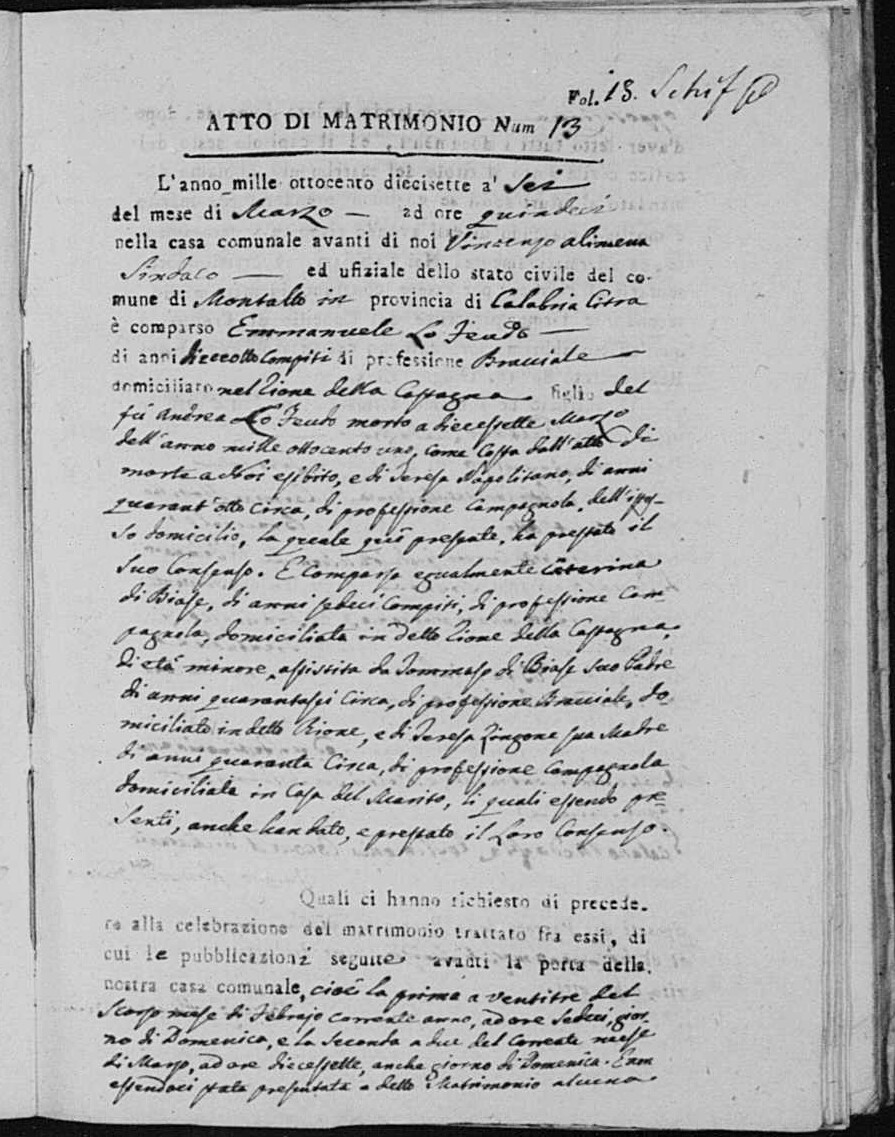 Fol. 13. Schif
ATTO DI MATRIMONIO Num 13
L'anno mille ottocento diecisette a' Sei
del mese di Marzo — ad ore quindeci
nella casa comunale avanti di noi Vincenzo alimena
Sindaco — ed ufiziale dello stato civile del co-
mune di Montalto in provincia di Calabria Citra
è comparso Emmanuele Lo Feudo —
di anni dicceotto Compiti di professione Bracciale
domiciliato nel Rione della Castagna figlio del
fù Andrea Lo Feudo morto a diecessette Marzo
dell'anno mille ottocento uno, come Costa dall'atto di
morte a Noi esibito, e di Teresa Napolitano, di anni
quarant'otto circa, di professione Campagnola, dell'ister-
so domicilio, la quale quì presente, ha prestato il
Suo Consenso. E Comparsa egualmente Catarina
di Biase, di anni sedeci Compiti, di professione Cam-
pagnola, domiciliata in detto Rione della Castagna,
di età minore, assistita da Tommaso di Biase Suo Padre
di anni quarantasei Circa, di professione Bracciale, do-
miciliato in detto Rione, e di Teresa Zingone sua Madre
di anni quaranta Circa, di professione Campagnola
domiciliata in Casa del Marito, li quali essendo pre-
senti, anche han dato, e prestato il Loro Consenso.
Quali ci hanno richiesto di precede-
re alla celebrazione del matrimonio trattato fra essi, di
cui le pubblicazioni seguite avanti la porta della
nostra casa comunale, cioè la prima a ventitre del
Scorso mese di Febrajo corrente anno, ad ore Sedeci, gior-
no di Domenica, e la Seconda a due del Corrente mese
di Marzo, ad ore diecessette, anche giorno di Domenica. E non
essendoci stata presentata a detto Matrimonio alcuna